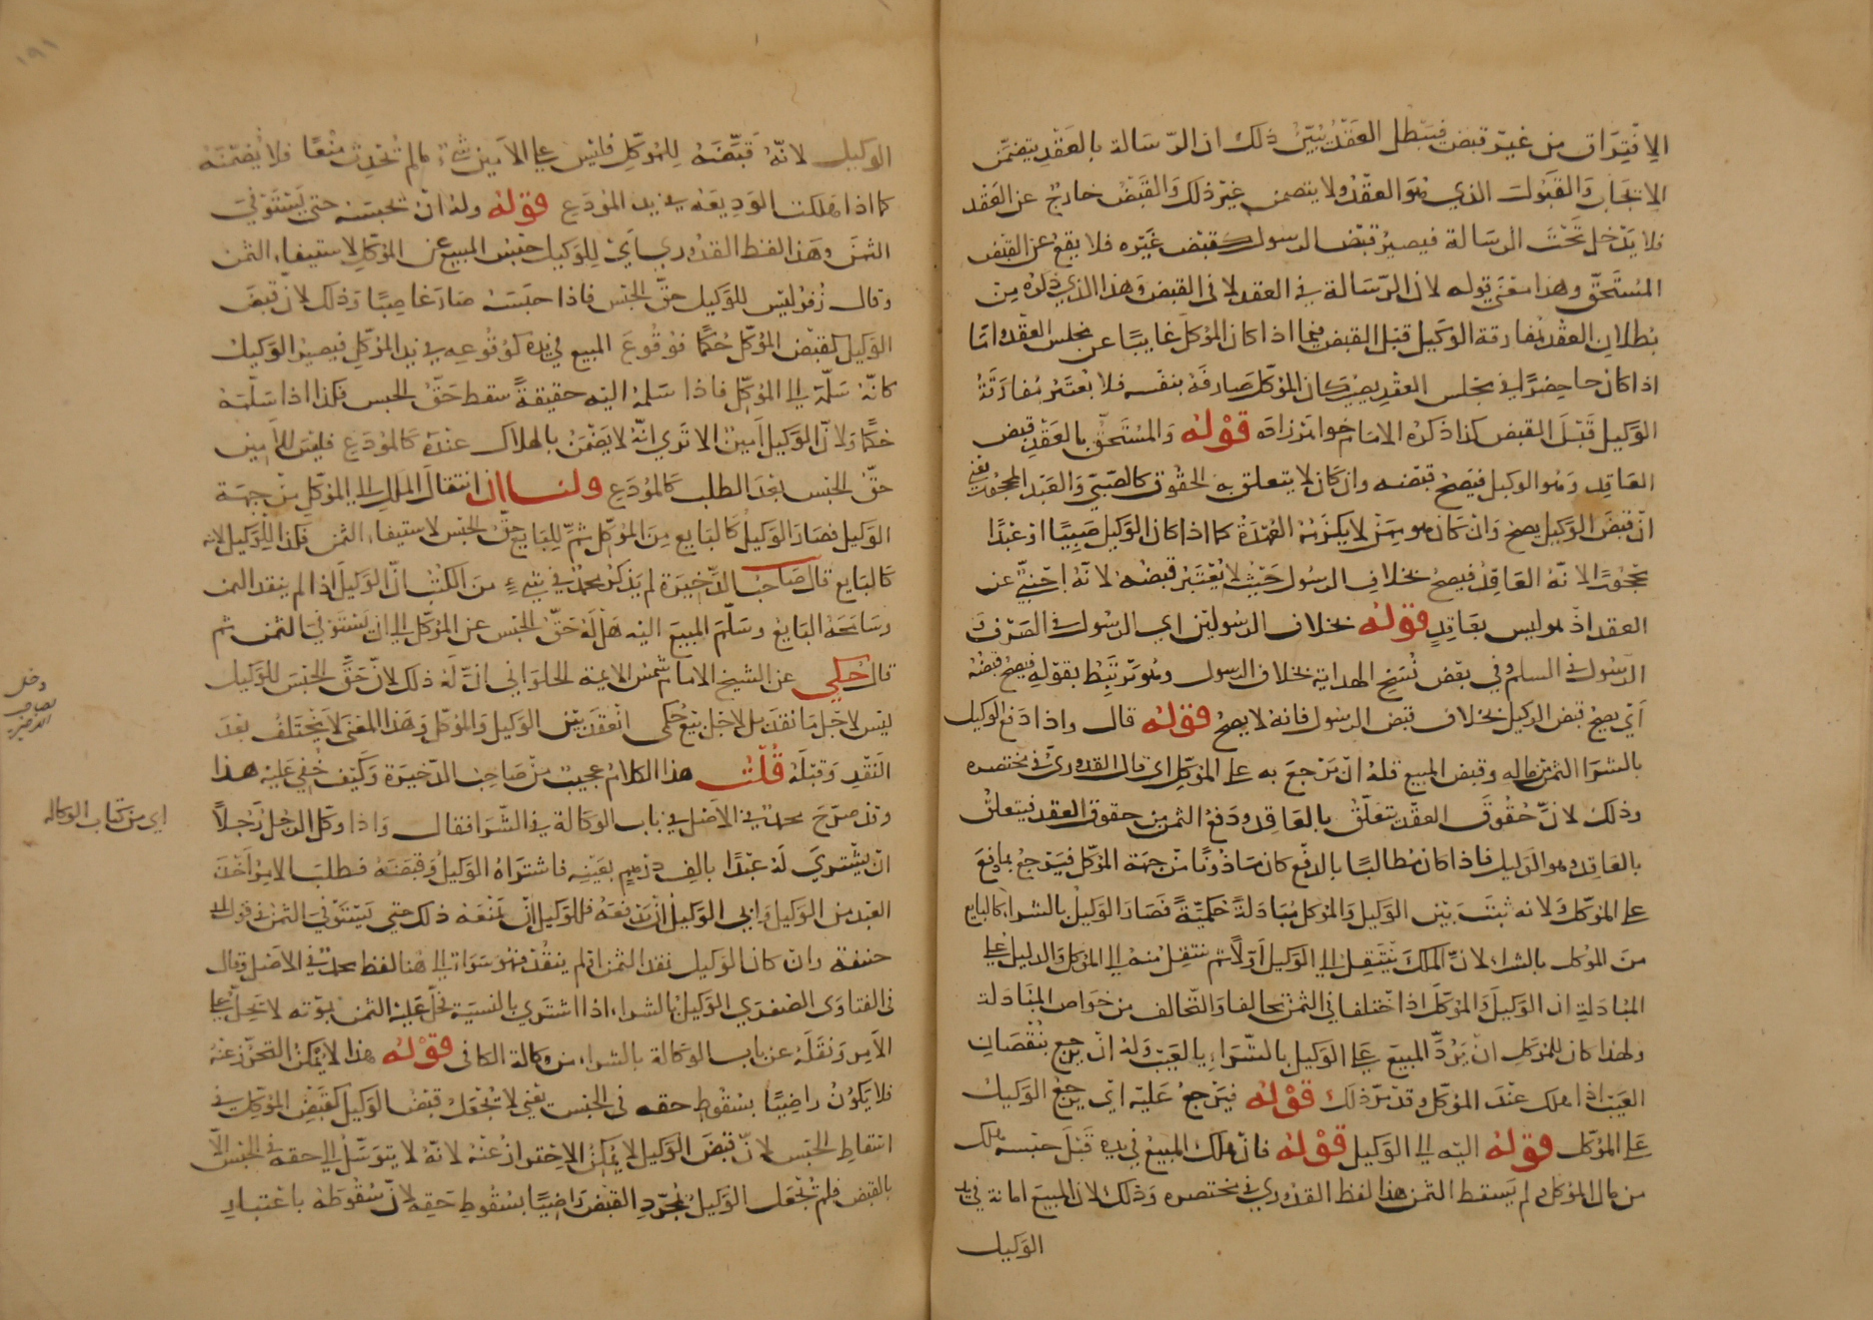 الافتراق من غير قبض فيبطل العقد يبين ذلك ان الرسالة بالعقد يتضمن
الايجاب والقبول الذي هو العقد ولا يتضمن غير ذلك والقبض خارج عن العقد
فلا يدخل تحت الرسالة فيصير قبض الرسول كقبض غيره فلا يقع عن القبض
المستحق وهذا معنى قوله لان الرسالة في العقد لا في القبض وهذا الذي ذكره من
بطلان العقد بمفارقة الوكيل قبل القبض فيما اذا كان الموكل غايبا عن مجلس العقد واما
اذا كان حاضرا في مجلس العقد يصير كان الموكل صارفه بنفسه فلا يعتبر مفارقة
الوكيل قبل القبض كذا ذكره الامام خواهرزاده قوله والمستحق بالعقد قبض
العاقد وهو الوكيل فيصح قبضه وان كان لا يتعلق به الحقوق كالصبي والعبد المحجور يعني
ان قبض الوكيل يصح وان كان هو ممن لا يلزمه العهدة كما اذا كان الوكيل صبيا او عبدا
محجورا لانه العاقد فيصح بخلاف الرسول حيث لا يعتبر قبضه لانه اجنبي عن
العقد اذ هو ليس بعاقد قوله بخلاف الرسولين اي الرسول في الصرف و
الرسول في السلم وفي بعض نسخ الهداية بخلاف الرسول وهو مرتبط بقوله فيصح قبضه
اي يصح قبض الوكيل بخلاف قبض الرسول فانه لا يصح قوله قال واذا دفع الوكيل
بالشرا الثمن من ماله وقبض المبيع فله ان يرجع به على الموكل اي قال القدوري في مختصره
وذلك لان حقوق العقد تتعلق بالعاقد ودفع الثمن من حقوق العقد فيتعلق
بالعاقد وهو الوكيل فاذا كان مطالبا بالدفع كان ماذونا من جهة الموكل فيرجع بما دفع
على الموكل ولانه ثبتت بين الوكيل والموكل مبادلة حكمية فصار الوكيل بالشرا كالبايع
من الموكل بالشراء لان الملك ينتقل الى الوكيل اولا ثم ينتقل منه الى الموكل والدليل على
المبادلة ان الوكيل والموكل اذا اختلفا في الثمن تحالفا والتحالف من خواص المبادلة
ولهذا كان للموكل ان يرد المبيع على الوكيل بالشراء بالعيب وله ان يرجع بنقصان
العيب اذا هلك عند الموكل وقد مر ذلك قوله فيرجع عليه اي يرجع الوكيل
على الموكل قوله اليه الى الوكيل قوله فان هلك المبيع في يده قبل حبسه هلك
من مال الموكل ولم يسقط الثمن هذا لفظ القدوري في مختصره وذلك لان المبيع امانة في يد
الوكيل
الوكيل لانه قبضه للموكل فليس على الامين شيء ما لم تحدث منعا فلا يضمنه
كما اذا هلكت الوديعة في يد المودع قوله وله ان يحبسه حتى يستوفي
الثمن وهذا لفظ القدوري اي للوكيل حبس المبيع عن الموكل لاستيفاء الثمن
وقال زفر ليس للوكيل حق الحبس فاذا حبسه صار غاصبا وذلك لان قبض
الوكيل كقبض الموكل حكما فوقوع المبيع في يده كوقوعه في يد الموكل فيصير الوكيل
كانه سلمه الى الموكل فاذا سلمه اليه حقيقة سقط حق الحبس فكذا اذا سلمه
حكما ولان الوكيل امين الا ترى انه لا يضمن بالهلاك عنده كالمودع فليس للامين
حق الحبس بعد الطلب كالمودع ولنا ان انتقال الملك الى الموكل من جهة
الوكيل فصار الوكيل كالبايع من الموكل ثم للبايع حق الحبس لاستيفاء الثمن فكذا للوكيل لانه
كالبايع قال صاحب الذخيرة لم يذكر محمد في شيء من الكتب ان الوكيل اذا لم ينقد الثمن
وسامحه البايع وسلم المبيع اليه هل له حق الحبس عن الموكل الى ان يستوفي الثمن ثم
قال حكي عن الشيخ الامام شمس الايمة الحلواني ان له ذلك لان حق الحبس للوكيل
ليس لاجل ما نقد بل لاجل بيع حكمي انعقد بين الوكيل والموكل وهذا المعنى لا يختلف بعد
النقد وقبله قلت هذا الكلام عجيب من صاحب الذخيرة وكيف خفي عليه هذا
وقد صرح محمد في الاصل في باب الوكالة في الشرا فقال واذا وكل الرجل رجلا
ان يشتري له عبدا بالف درهم بعينه فاشتراه الوكيل وقبضه فطلب الامر اخذ
العبد من الوكيل وابى الوكيل ان يدفعه فللوكيل ان يمنعه ذلك حتى يستوفي الثمن في قول ابي
حنيفة وان كان الوكيل نقد الثمن او لم ينقد فهو سواء الى هنا لفظ محمد في الاصل وقال
في الفتاوى الصغرى الوكيل بالشراء اذا اشترى بالنسية فحل عليه الثمن بموته لا يحل على
الامر ونقله عن باب الوكالة بالشراء من وكالة الكافي قوله هذا لا يمكن التحرز عنه
فلا يكون راضيا بسقوط حقه في الحبس يعني لا تجعل قبض الوكيل كقبض الموكل في
اسقاط الحبس لان قبض الوكيل لا يمكن الاحتراز عنه لانه لا يتوسل الى حقه في الحبس الا
بالقبض فلم تجعل الوكيل بمجرد القبض راضيا بسقوط حقه لان سقوطه باعتبار
اي من كتاب الوكالة